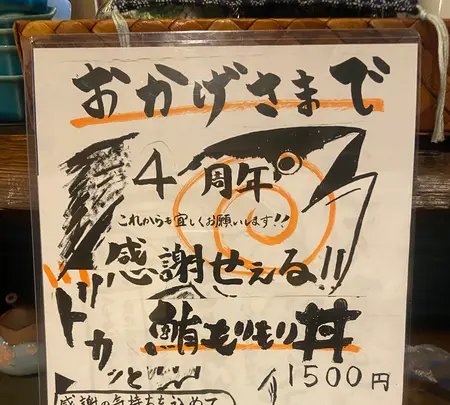 おかげさまで
4周年
これからも宜しくお願いします!!
感謝せえる!!
ドカッと
鮪もりもり丼
1500円
感謝の気持ちを込めて